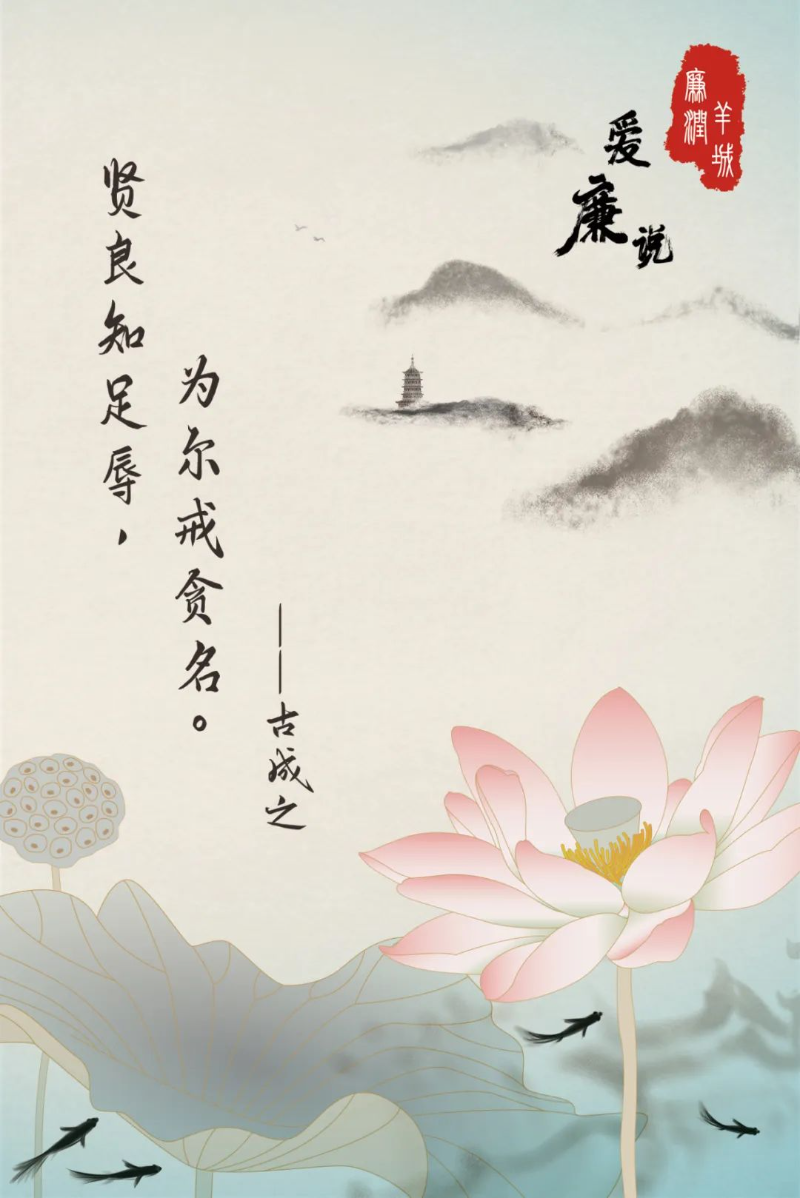 廉潤
羊城
爱廉说
贤良知足辱，
为尔戒贪名。
——古成之